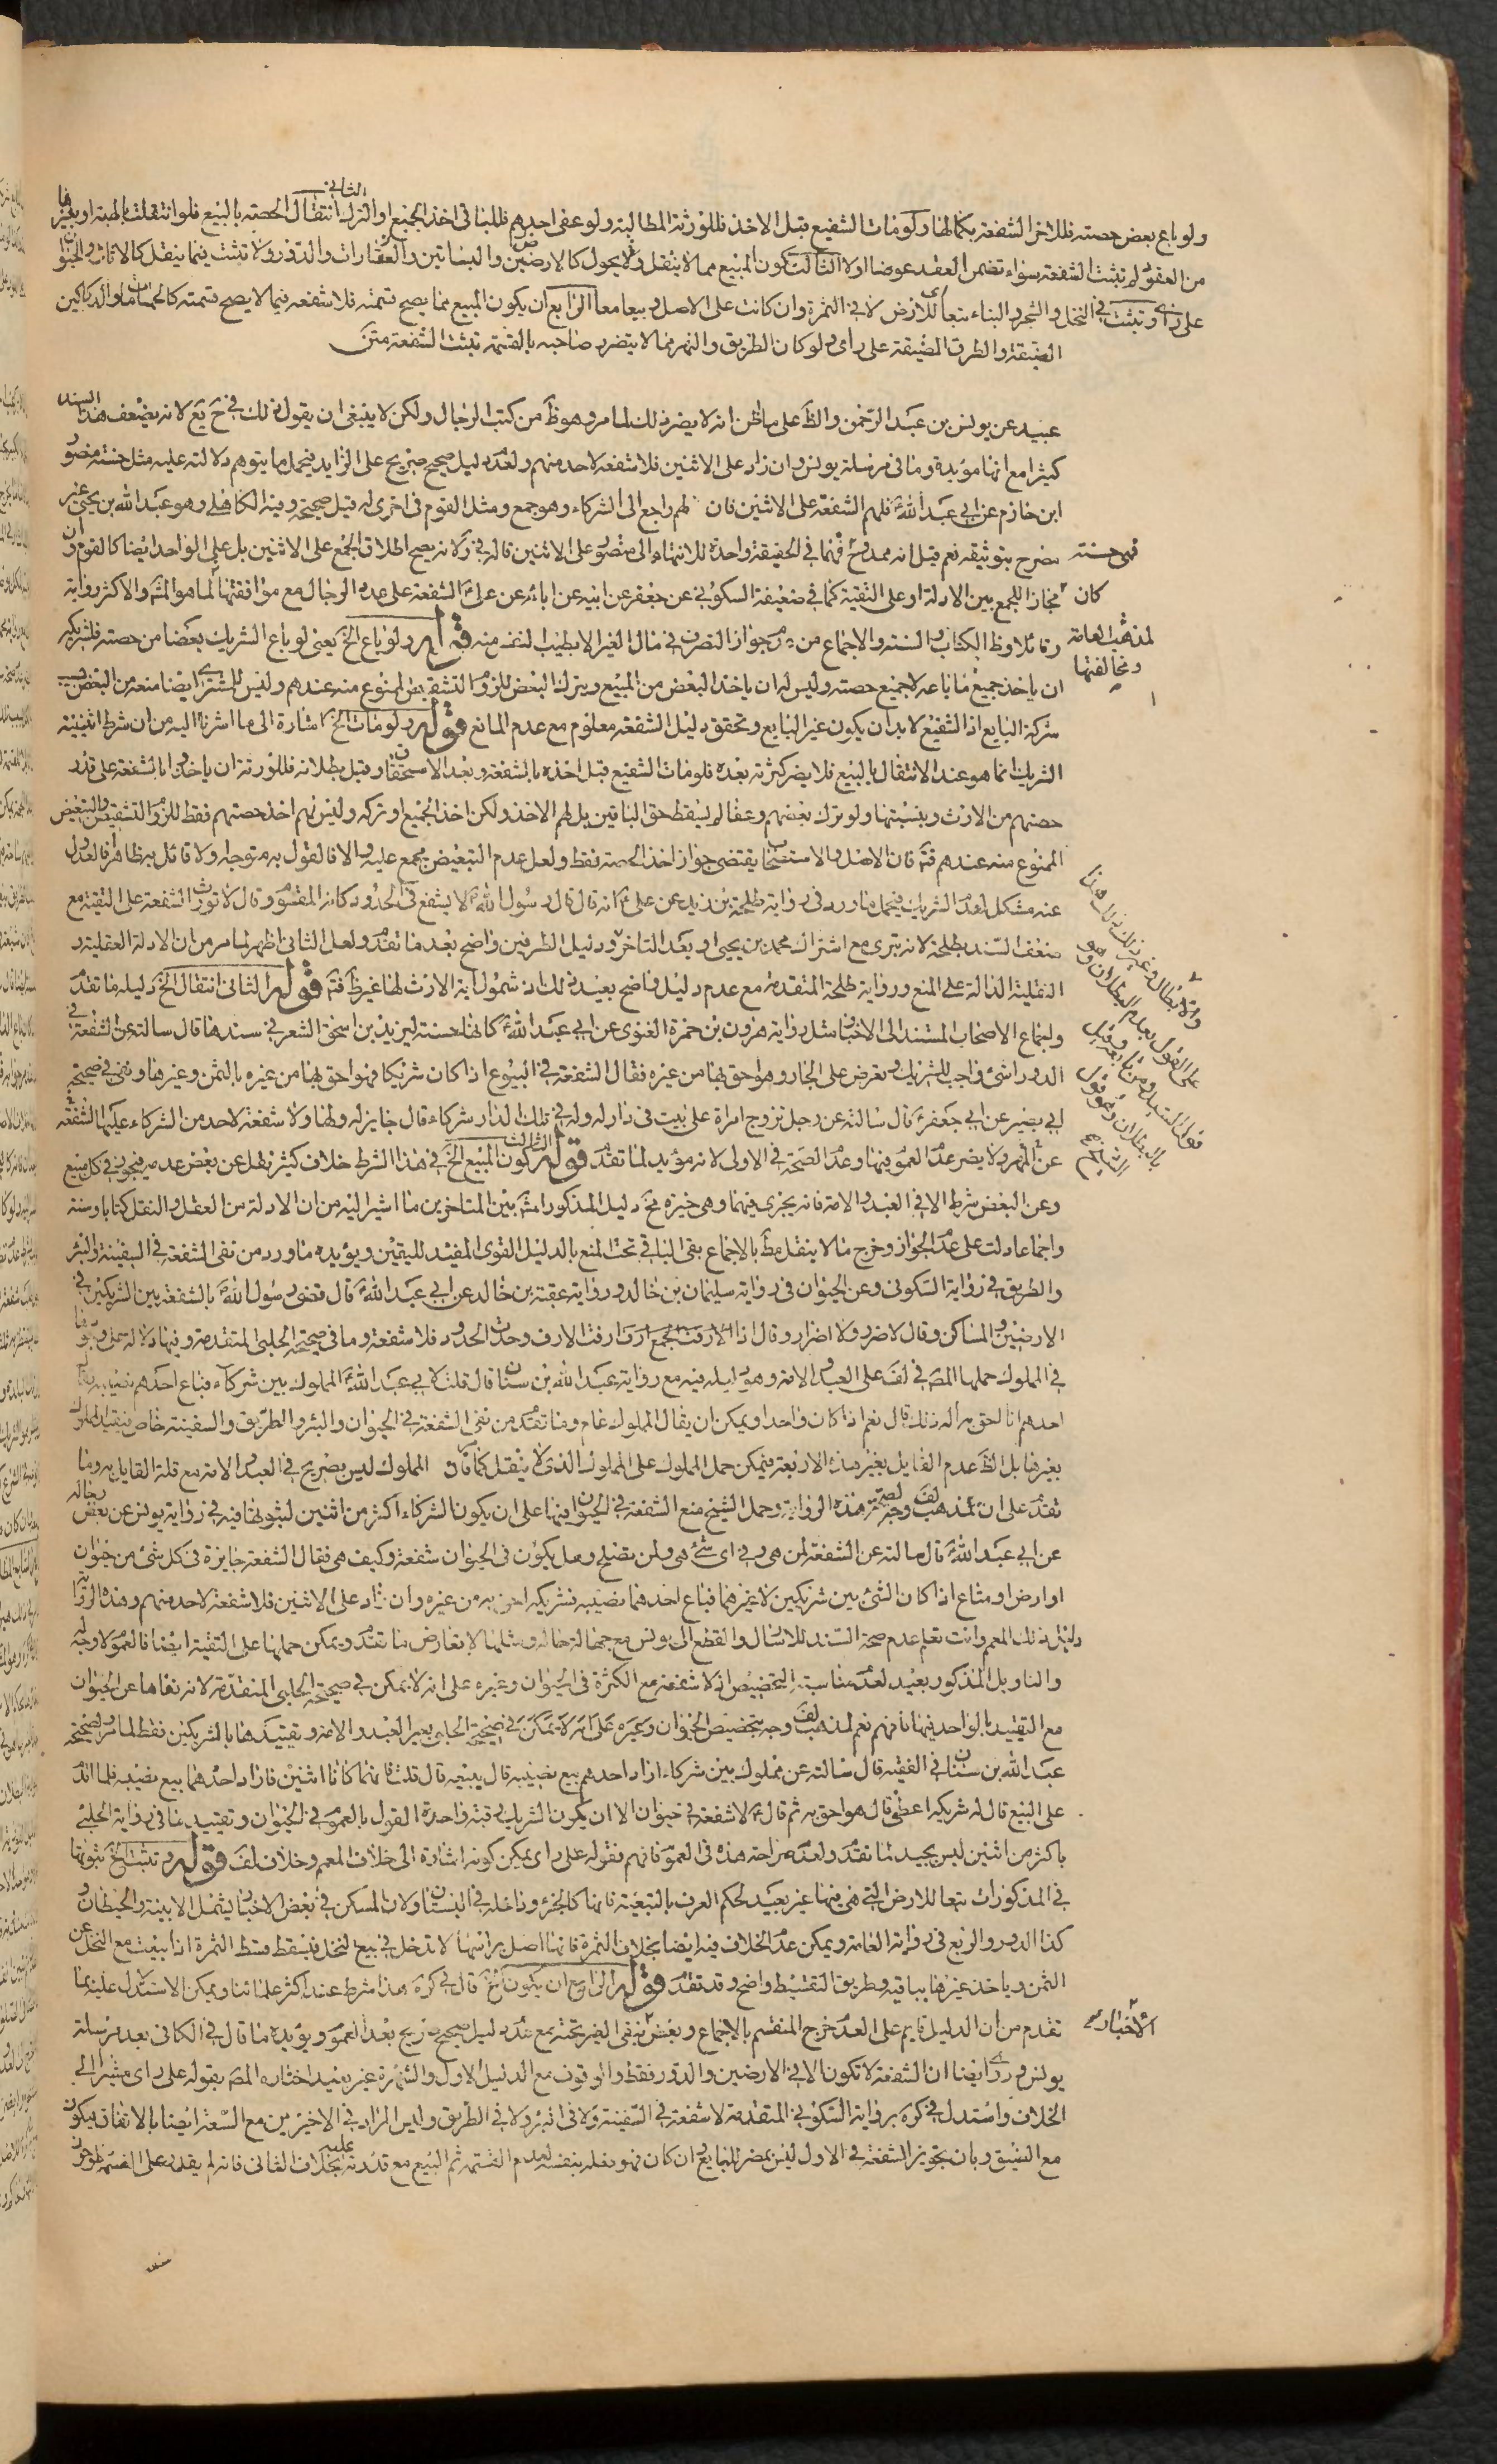 ولو باع بعض حصته فللاخر الشفعة بكمالها ولو مات الشفيع قبل الاخذ فللورثة المطالبة ولو عفى احدهم فللباقى اخذ الجميع او الترك الثانى انتقال الحصة بالبيع فلو انتقلت بالهبة او بغيرها
من العقود لم تثبت الشفعة سواء تضمن العقد عوضا اولا الثالث كون المبيع مما لا ينقل ولا يحول كالارضين والبساتين والعقارات والدور ولا تثبت فيما ينقل كالاثاث والحيوان
على رأى وتثبت فى النخل والشجر والبناء تبعا للارض لا فى الثمرة وان كانت على الاصل وبيعا معا الرابع ان يكون المبيع مما يصح قسمته فلا شفعة فيما لا يصح قسمته كالحمامات والدكاكين
الضيقة والطرق الضيقة على رأى ولو كان الطريق والنهر مما لا يتضرر صاحبه بالقسمة تثبت الشفعة متن
عبيد عن يونس بن عبد الرحمن والظ على ما ظن انه لا يضر ذلك لما مر وهو ظ من كتب الرجال ولكن لا ينبغى ان يقول ذلك فى ح يع لانه يضعف هذا السند
كثيرا مع انها مؤيدة وما فى مرسلة يونس وان زاد على الاثنين فلا شفعة لاحد منهم ولعدم دليل صحيح صريح على الزايد فيحمل ما يتوهم دلالته عليه مثل حسنة منصور
ابن حازم عن ابى عبد الله فلهم الشفعة على الاثنين فان لهم راجع الى الشركاء وهو جمع ومثل القوم فى اخرى له قيل صحيحة وفيه الكاهلى وهو عبد الله بن يحيى غير
مصرح بتوثيقه نعم قيل انه ممدوح فهما فى الحقيقة واحدة للانتهاء الى منصور على الاثنين قاله فى كره لانه يصح اطلاق الجمع على الاثنين بل على الواحد ايضا كالقوم وان
فهى حسنة
كان مجازا للجمع بين الادلة او على التقية كما فى ضعيفة السكونى عن جعفر عن ابيه عن ابائه عن على الشفعة على عدد الرجال مع موافقتها لما هو المشهور والاكثر رواية
وقائلا وظ الكتاب والسنة والاجماع من عدم جواز التصرف فى مال الغير الا بطيب النفس منه قوله ولو باع الخ يعنى لو باع الشريك بعضا من حصته فلشريكه
لمذهب العامة
ومخالفتها
ان ياخذ جميع ما باعه لا جميع حصته وليس له ان ياخذ البعض من المبيع ويترك البعض للزوم التشقيص الممنوع منه عندهم وليس للمشترى ايضا منعه من البعض بسبب
شركة البايع اذ الشفيع لابد ان يكون غير البايع وتحقق دليل الشفعة معلوم مع عدم المانع قوله ولو مات الخ اشارة الى ما اشرنا اليه من ان شرط اثنينية
الشريك انما هو عند الانتقال بالبيع فلا يضر كثرته بعده فلو مات الشفيع قبل اخذه بالشفعة وبعد الاستحقاق وقبل بطلانه فللورثة ان ياخذوا بالشفعة على قدر
حصتهم من الارث وبنسبتها ولو ترك بعضهم وعفا لم يسقط حق الباقين بل لهم الاخذ ولكن اخذ الجميع او تركه وليس لهم اخذ حصتهم فقط للزوم التشقيص والتبعيض
الممنوع منه عندهم فتم فان الاصل والاستصحاب يقتضى جواز اخذ الحصة فقط ولعل عدم التبعيض مجمع عليه والا فالقول به متوجه ولا قائل به ظاهرا فالعدول
عنه مشكل لعدم الشريك فيحمل ما ورد فى رواية طلحة بن زيد عن على انه قال قال رسول الله لا يشفع فى الحدود كانه المقسوم وقال لا تورث الشفعة على التقية مع
ضعف السند بطلحة لانه بترى مع اشتراك محمد بن يحيى او بعد التاخر ودليل الطرفين واضح بعد ما تقدم ولعل الثانى اظهر لما مر من ان الادلة العقلية و
النقلية الدالة على المنع ورواية طلحة المتقدمة مع عدم دليل واضح يفيد ذلك اذ شمول اية الارث لها غير ظ فتم قوله الثانى انتقال الخ دليله ما تقدم
والابطال وغير ذلك بذلك هنا
على القول بعدم البطلان وهو
قول السيد ومن تابعه وقيل
بالبطلان وهو قول
الشيخ
واجماع الاصحاب المستند الى الاخبار مثل رواية هرون بن حمزة الغنوى عن ابى عبد الله كانها حسنة ليزيد بن اسحق الشعر فى سندها قال سالته عن الشفعة فى
الدور اشئ واجب للشريك ويعرض على الجار وهو احق بها من غيره فقال الشفعة فى البيوع اذا كان شريكا فهو احق بها من غيره بالثمن وغيرها ونفى فى صحيحة
ابى بصير عن ابى جعفر قال سالته عن رجل تزوج امراة على بيت فى دار له وله فى تلك الدار شركاء قال جايز له ولها ولا شفعة لاحد من الشركاء عليها الشفعة
عن المهر ولا يضر عدم العموم فيها وعدم الصحة فى الاولى لانه مؤيد لما تقدم قوله الثالث كون المبيع الخ فى هذا الشرط خلاف كثير نقل عن بعض عدمه فيجوز فى كل مبيع
وعن البعض شرط الا فى العبد والامة فانه يجزى فيهما وهى خيرة مخ دليل المذكور المشهور بين المتاخرين ما اشير اليه من ان الادلة من العقل والنقل كتابا وسنة
واجماعا دلت على عدم الجواز وخرج ما لا ينقل مط بالاجماع بقى الباقى تحت المنع بالدليل القوى المفيد لليقين ويؤيده ما ورد من نفى الشفعة فى السفينة والنهر
والطريق فى رواية السكونى وعن الحيوان فى رواية سليمان بن خالد ورواية عقبة بن خالد عن ابى عبد الله قال قضى رسول الله بالشفعة بين الشريكين فى
الارضين والمساكن وقال لا ضرر ولا اضرار وقال اذا ارفت الارف وحدت الحدود فلا شفعة وما فى صحيحة الحلبى المتقدمة وفيها دلالة على ثبوتها
فى المملوك حملها المصه فى لف على العبد والامة وهو دليله فيه مع رواية عبد الله بن سنان قال قلت لابى عبد الله المملوك بين شركاء فباع احدهم نصيبه فقال
احدهم انا احق به اله ذلك قال نعم اذا كان واحدا ويمكن ان يقال المملوك عام وما تقدم من نفى الشفعة فى الحيوان والبئر والطريق والسفينة خاص فيقيد المملوك
بغيرها بل الظ عدم القايل بغير هذه الاربعة فيمكن حمل المملوك على المملوك الذى لا ينقل كما قال المملوك ليس بصريح فى العبد والامة مع قلة القايل به وما
تقدم على ان لمذهب لف وجه لصحة هذه الرواية وحمل الشيخ منع الشفعة فى الحيوان فيها على ان يكون الشركاء اكثر من اثنين لثبوتها فيه فى رواية يونس عن بعض رجاله
عن ابى عبد الله قال سالته عن الشفعة لمن هى وفى اى شئ هى ولمن تصلح وهل يكون فى الحيوان شفعة وكيف هى فقال الشفعة جايزة فى كل شئ من حيوان
او ارض او متاع اذا كان الشئ بين شريكين لا غيرهما فباع احدهما نصيبه فشريكه احق به من غيره وان زاد على الاثنين فلا شفعة لاحد منهم وهذه الرواية
دليل ذلك المعمم وانت تعلم عدم صحة السند للارسال والقطع الى يونس مع جهالة حاله ومثلها لا يعارض ما تقدم ويمكن حملها على التقية ايضا فالعموم لا وجه له
والتاويل المذكور بعيد لعدم مناسبة التخصيص اذ لا شفعة مع الكثرة فى الحيوان وغيره على انه لا يمكن فى صحيحة الحلبى المتقدمة لانه نفاها عن الحيوان
مع التقييد بالواحد فيها فافهم نعم لمذهب لف وجه بتخصيص الحيوان وغيره على انه لا يمكن فى صحيحة الحلبى بغير العبد والامة وتقييدها بالشريكين فقط لما مر لصحيحة
عبد الله بن سنان فى الفقيه قال سالته عن مملوك بين شركاء اراد احدهم بيع نصيبه قال يبيعه قال قلت فانهما كانا اثنين فاراد احدهما بيع نصيبه فلما اقدم
على البيع قال له شريكه اعطنى قال هو احق به ثم قال لا شفعة فى حيوان الا ان يكون الشريك فيه واحدا القول بالعموم فى الحيوان وتقييد ما فى رواية الحلبى
باكثر من اثنين ليس بجيد لما تقدم ولعدم صراحة هذه فى العموم فافهم فقوله على راى يمكن كونه اشارة الى خلاف المعمم وخلاف لف قوله وتثبت الخ ثبوتها
فى المذكورات تبعا للارض التى هى فيها غير بعيد لحكم العرف بالتبعية فانها كالجزء وداخلة فى البستان ولان المسكن فى بعض الاخبار يشمل الابنية والحيطان و
كذا الدور والربع فى رواية العامة ويمكن عدم الخلاف فيه ايضا بخلاف الثمرة فانها اصل براسها لا تدخل فى بيع النخل فيسقط قسط الثمرة اذا بيعت مع النخل عن
الثمن وياخذ غيرها بباقيه وطريق التقسيط واضح وقد تقدم قوله الرابع ان يكون الخ قال فى كره هذا شرط عند اكثر علمائنا ويمكن الاستدلال عليه بما
تقدم من ان الدليل قايم على العدم خرج المنقسم بالاجماع وبعض الاخبار بقى الغير تحته مع عدم دليل صحيح صريح بعد العموم ويؤيده ما قال فى الكافى بعد مرسلة
يونس وروى ايضا ان الشفعة لا تكون الا فى الارضين والدور فقط والوقوف مع الدليل الاول والشهرة غير بعيد اختاره المصه بقوله على راى مشيرا الى
الخلاف واستدل فى كره برواية السكونى المتقدمة لا شفعة فى السفينة ولا فى النهر ولا فى الطريق وليس المراد فى الاخيرين مع السعة ايضا بالاتفاق فيكون
مع الضيق وبان تجويز الشفعة فى الاول ليس بمضر للبايع وان كان فهو فعله بنفسه لعدم القسمة ثم البيع مع قدرته عليه بخلاف الثانى فانه لم يقدر على القسمة فيكون